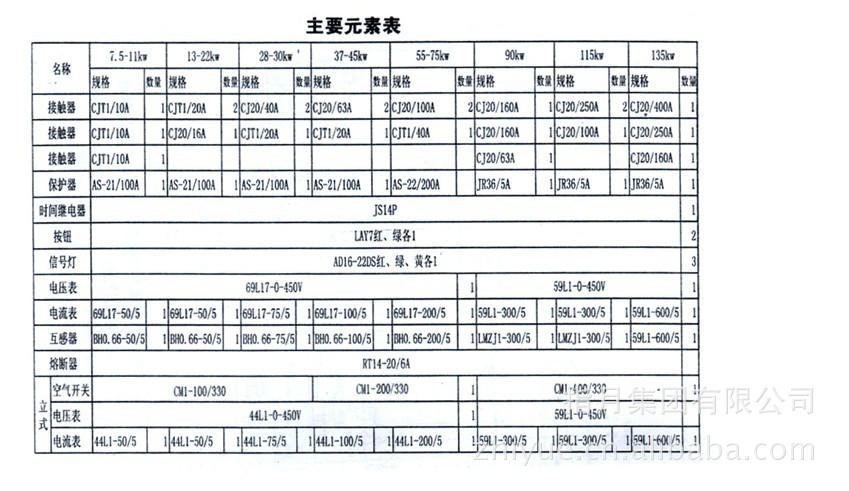 主要元素表
名称 7.5-11kw 13-22kw 28-30kw 37-45kw 55-75kw 90kw 115kw 135kw
规格 数量 规格 数量 规格 数量 规格 数量 规格 数量 规格 数量 规格 数量 规格 数量
接触器 CJT1/10A 1 CJT1/20A 2 CJ20/40A 2 CJ20/63A 2 CJ20/100A 2 CJ20/160A 1 CJ20/250A 2 CJ20/400A 1
接触器 CJT1/10A 1 CJ20/16A 1 CJT1/20A 1 CJT1/20A 1 CJT1/40A 1 CJ20/160A 1 CJ20/100A 1 CJ20/250A 1
接触器 CJT1/10A 1 CJ20/63A 1 CJ20/160A 1
保护器 AS-21/100A 1 AS-21/100A 1 AS-21/100A 1 AS-21/100A 1 AS-22/200A 1 JR36/5A 1 JR36/5A 1 JR36/5A 1
时间继电器 JS14P 1
按钮 LAY7红、绿各1 2
信号灯 AD16-22DS红、绿、黄各1 3
电压表 69L17-0-450V 1 59L1-0-450V 1
电流表 69L17-50/5 1 69L17-50/5 1 69L17-75/5 1 69L17-100/5 1 69L17-200/5 1 59L1-300/5 1 59L1-300/5 1 59L1-600/5 1
互感器 BH0.66-50/5 1 BH0.66-50/5 1 BH0.66-75/5 1 BH0.66-100/5 1 BH0.66-200/5 1 LMZJ1-300/5 1 LMZJ1-300/5 1 59L1-600/5 1
熔断器 RT14-20/6A
立式 空气开关 CM1-100/330 CM1-200/330 1 CM1-400/330
电压表 44L1-0-450V 1 59L1-0-450V
电流表 44L1-50/5 1 44L1-50/5 1 44L1-75/5 1 44L1-100/5 1 44L1-200/5 1 59L1-300/5 1 59L1-300/5 1 59L1-600/5 1
月集团有限公司
zhiyue.cn.alibaba.com